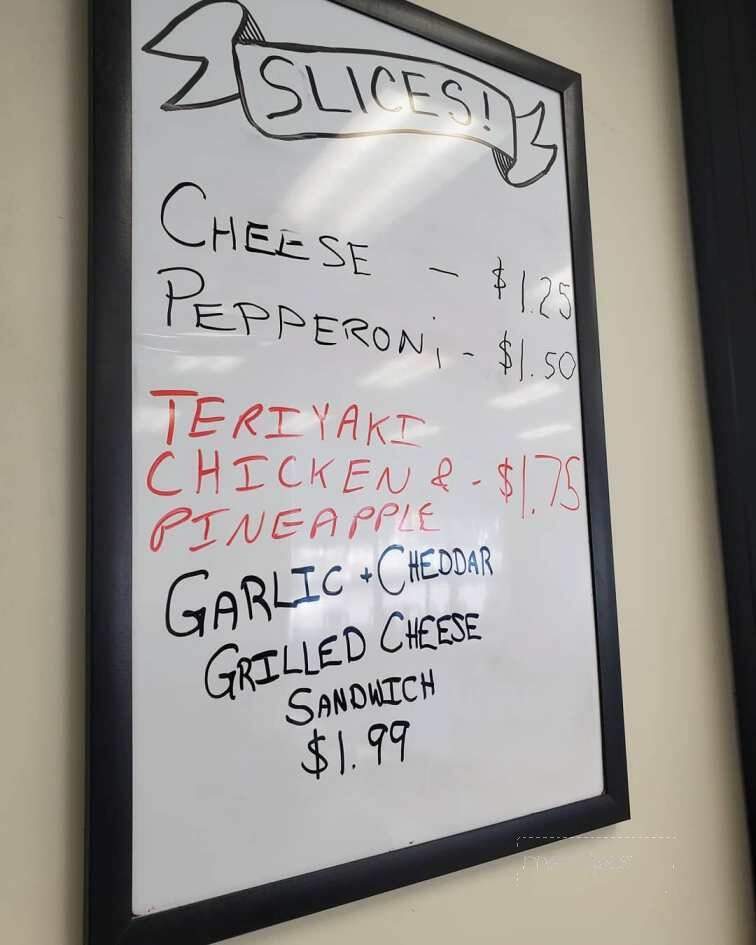 SLICES!
CHEESE - $1.25
PEPPERONi - $1.50
TERIYAKI
CHICKEN & - $1.75
PINEAPPLE
GARLIC + CHEDDAR
GRILLED CHEESE
SANDWICH
$1.99